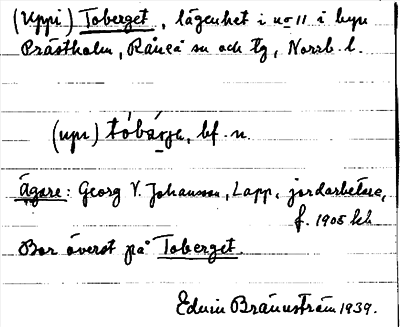 (Uppi) Toberget, lägenhet i no 11 i byn
Prästholm, Råneå sn och tg, Norrb. l.
(upi) tóbárje, bf. n.
Ägare: Georg V. Johansson, Lapp, jordarbetare,
f. 1905
Bor överst på Toberget.
Edwin Brännström 1939.